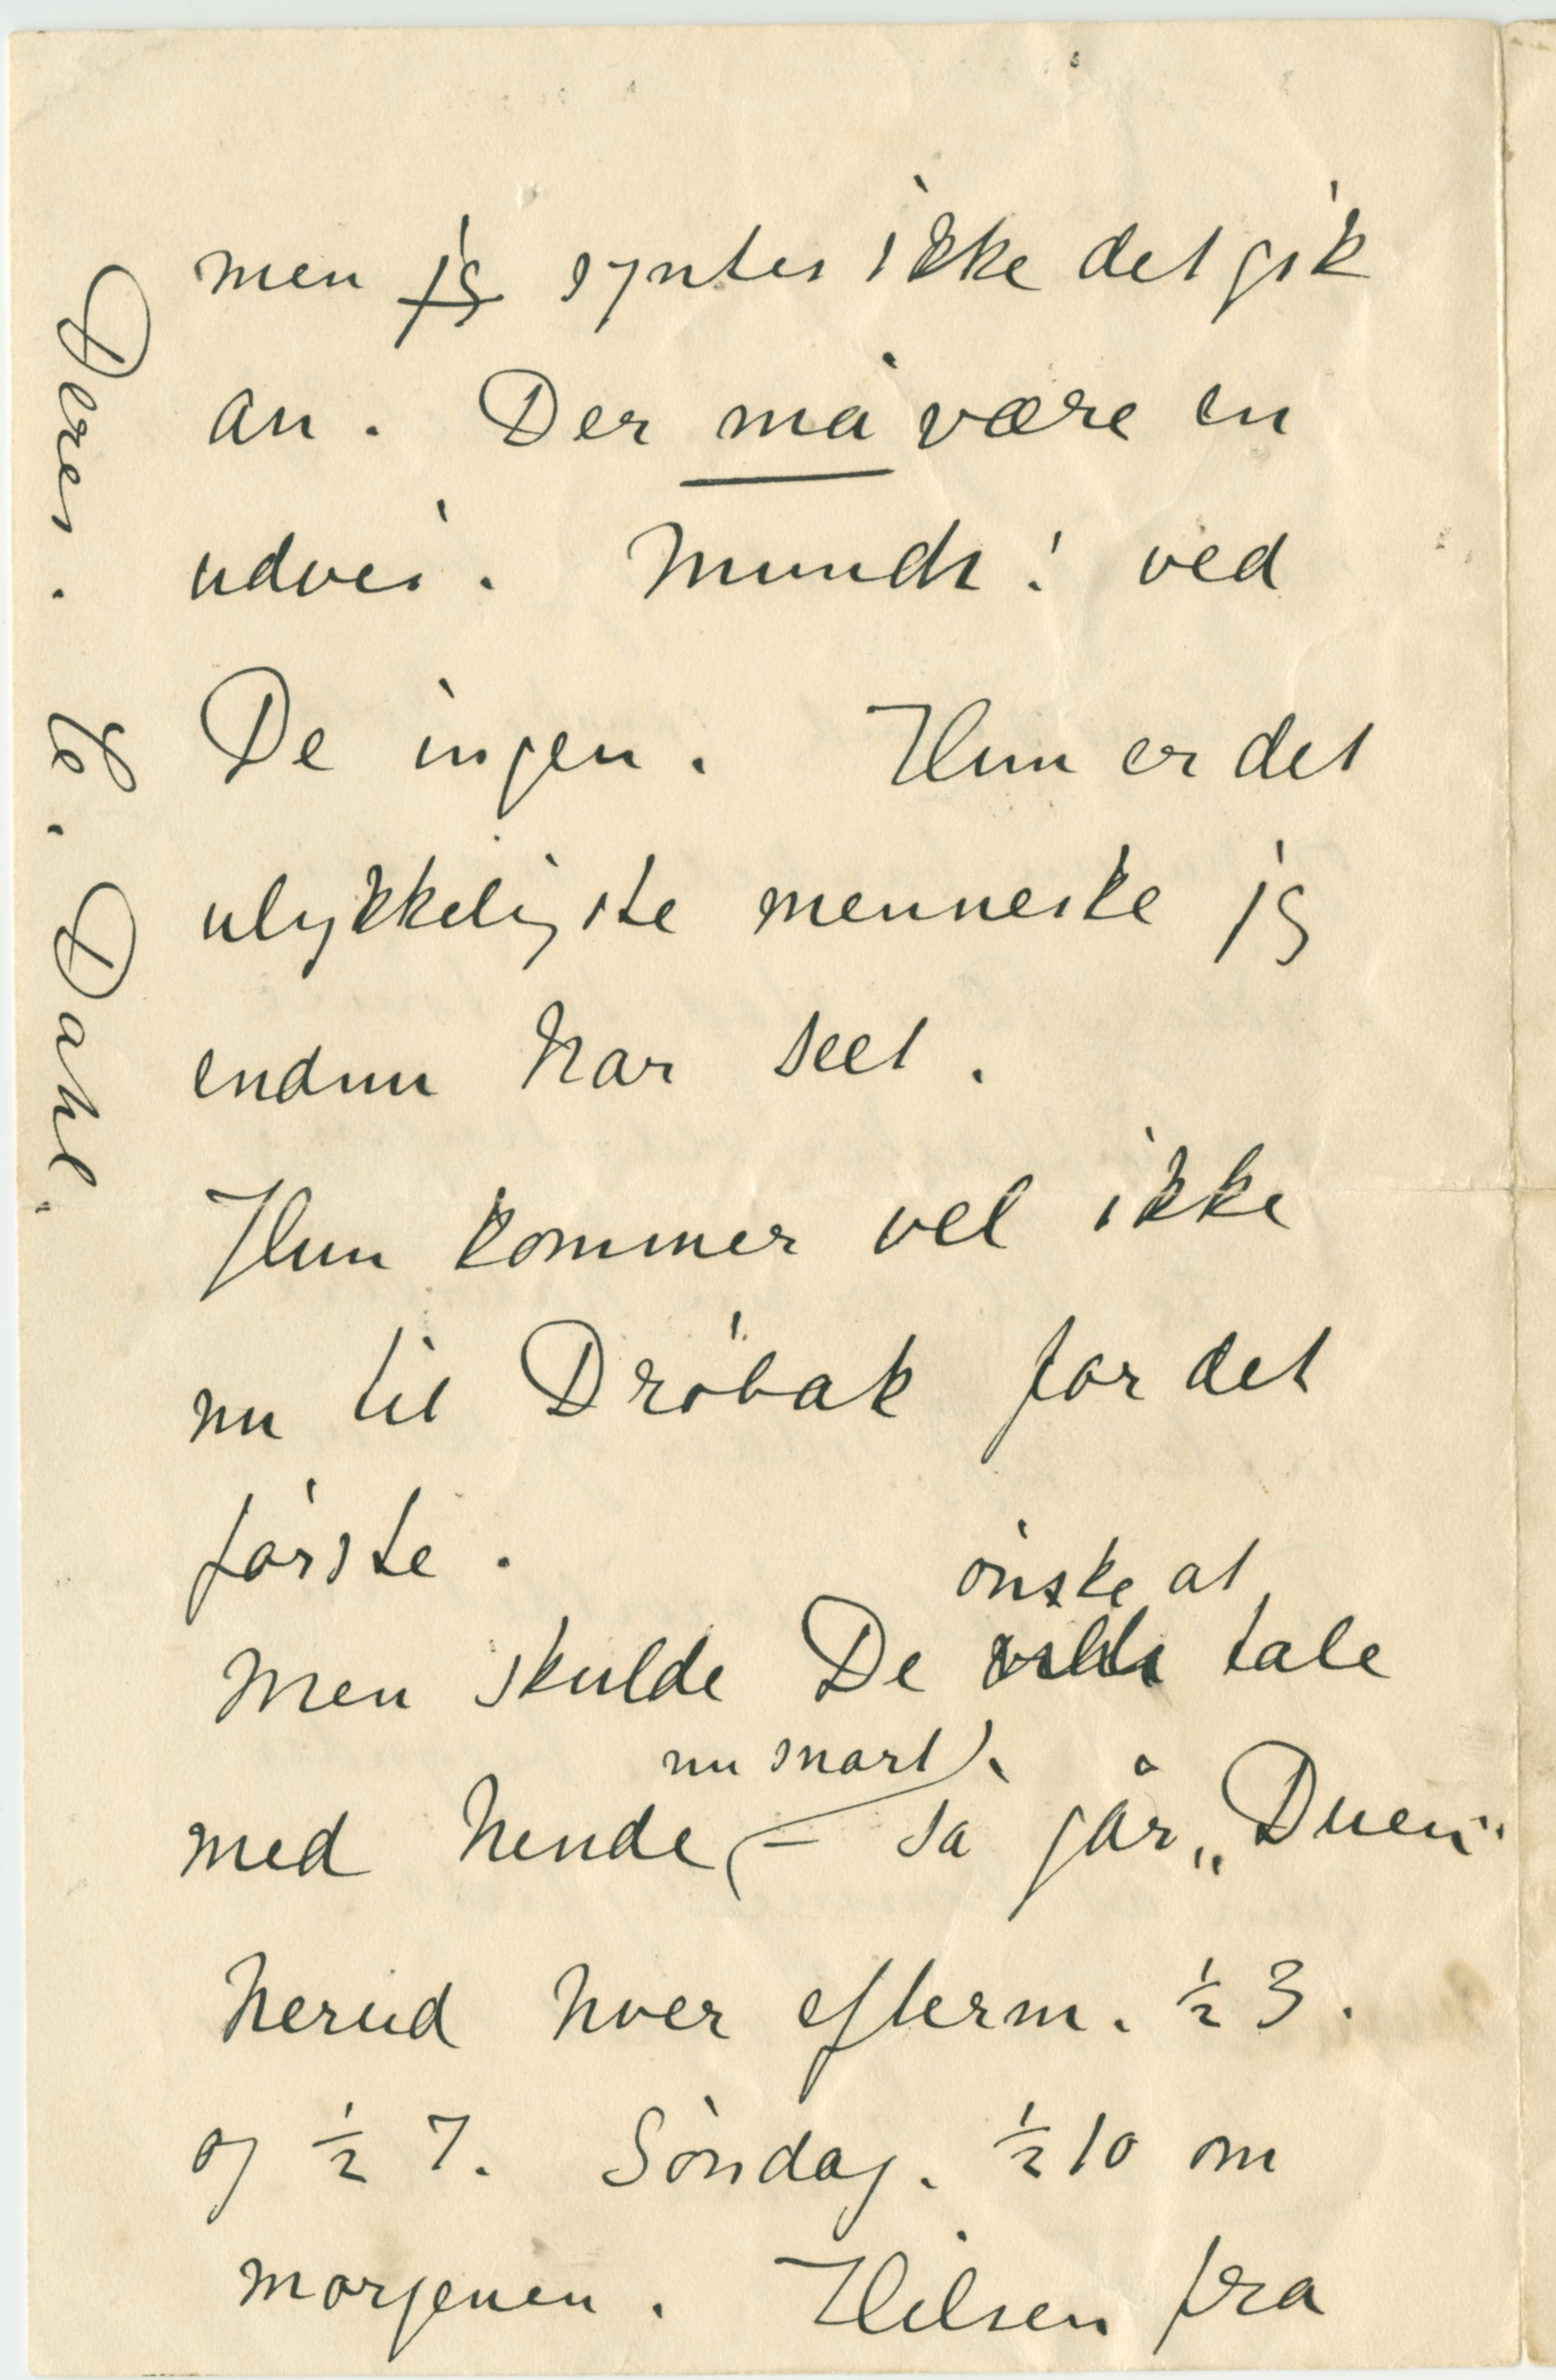 men jg syntes ikke det gik
an. Der må være en
udvei. Munch! ved
De ingen. Hun er det
ulykkeligste menneske jg
endnu har seet.
Hun kommer vel ikke
nu til Dröbak for det
förste.
önske at
Men skulde De vilde tale
nu snart).
med hende (– så går „Duen“
herud hver efterm. ½ 3.
og ½ 7. Söndag. ½ 10 om
morgenen. Hilsen fra
Deres. C. Dahl.